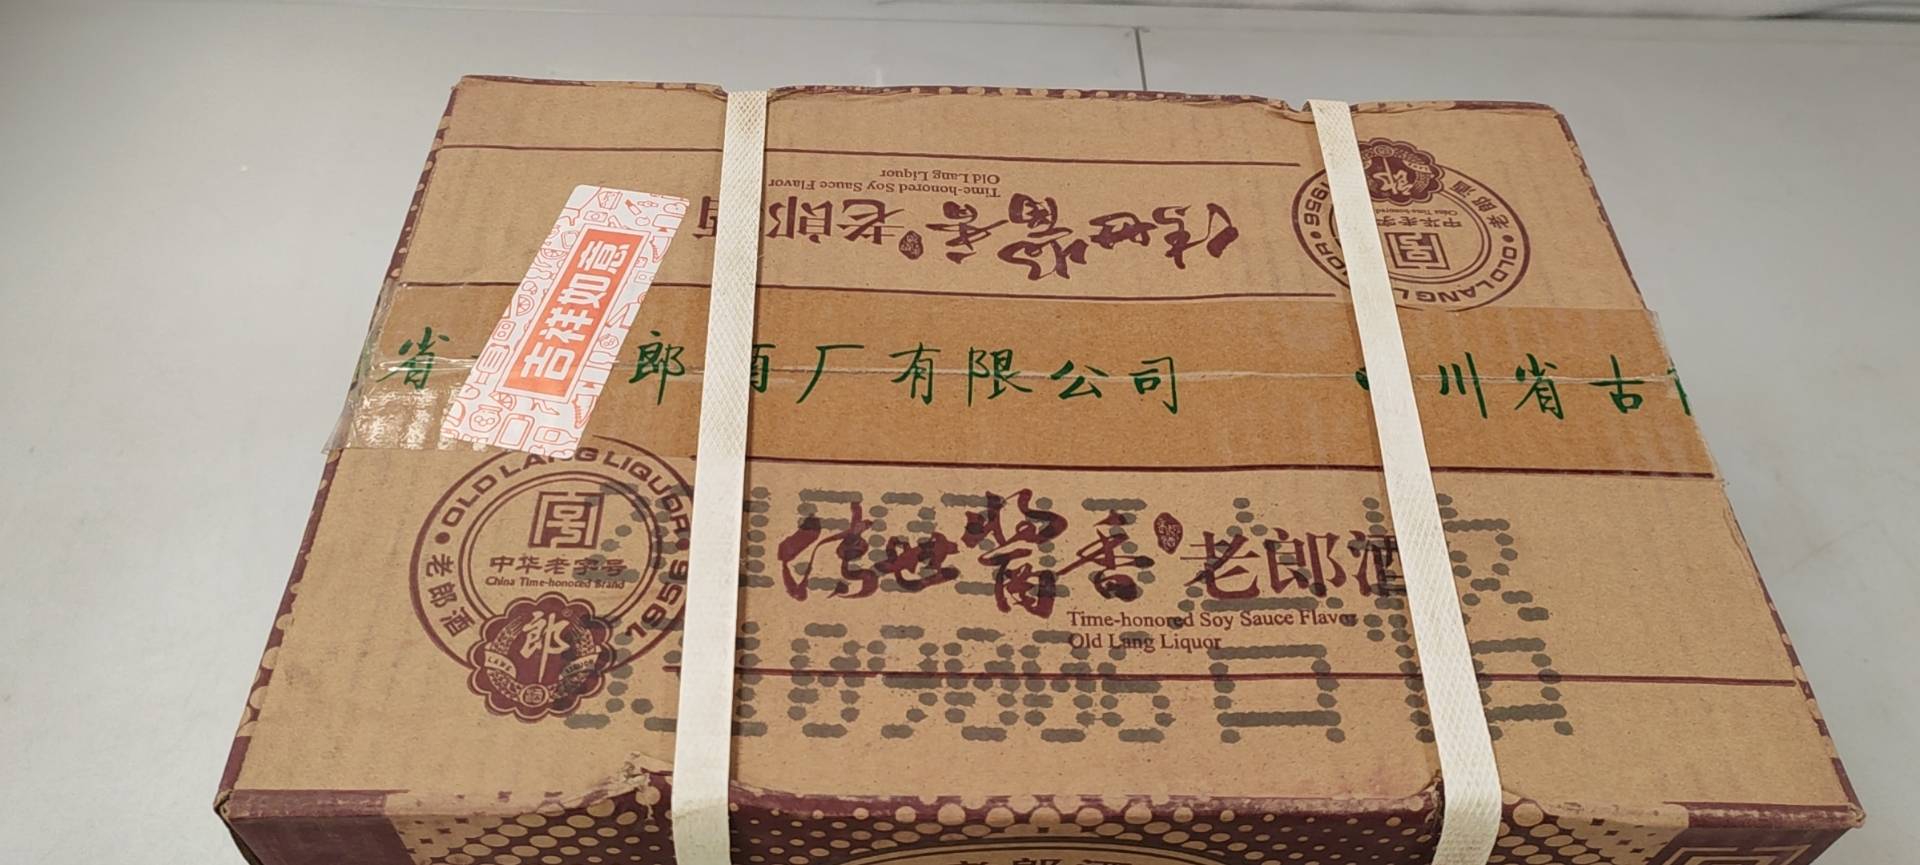 Time-honored Soy Sauce Flavor
Old Lang Liquor
传世酱香 老郎酒
老郎酒 OLD LANG LIQUOR 1956
中华老字号
China Time-honored
吉祥如意
省 郎酒厂有限公司 川省古
OLD LANG LIQUOR 1956 老郎酒
中华老字号
China Time-honored Brand
郎
传世酱香 老郎酒
Time-honored Soy Sauce Flavor
Old Lang Liquor
老郎酒